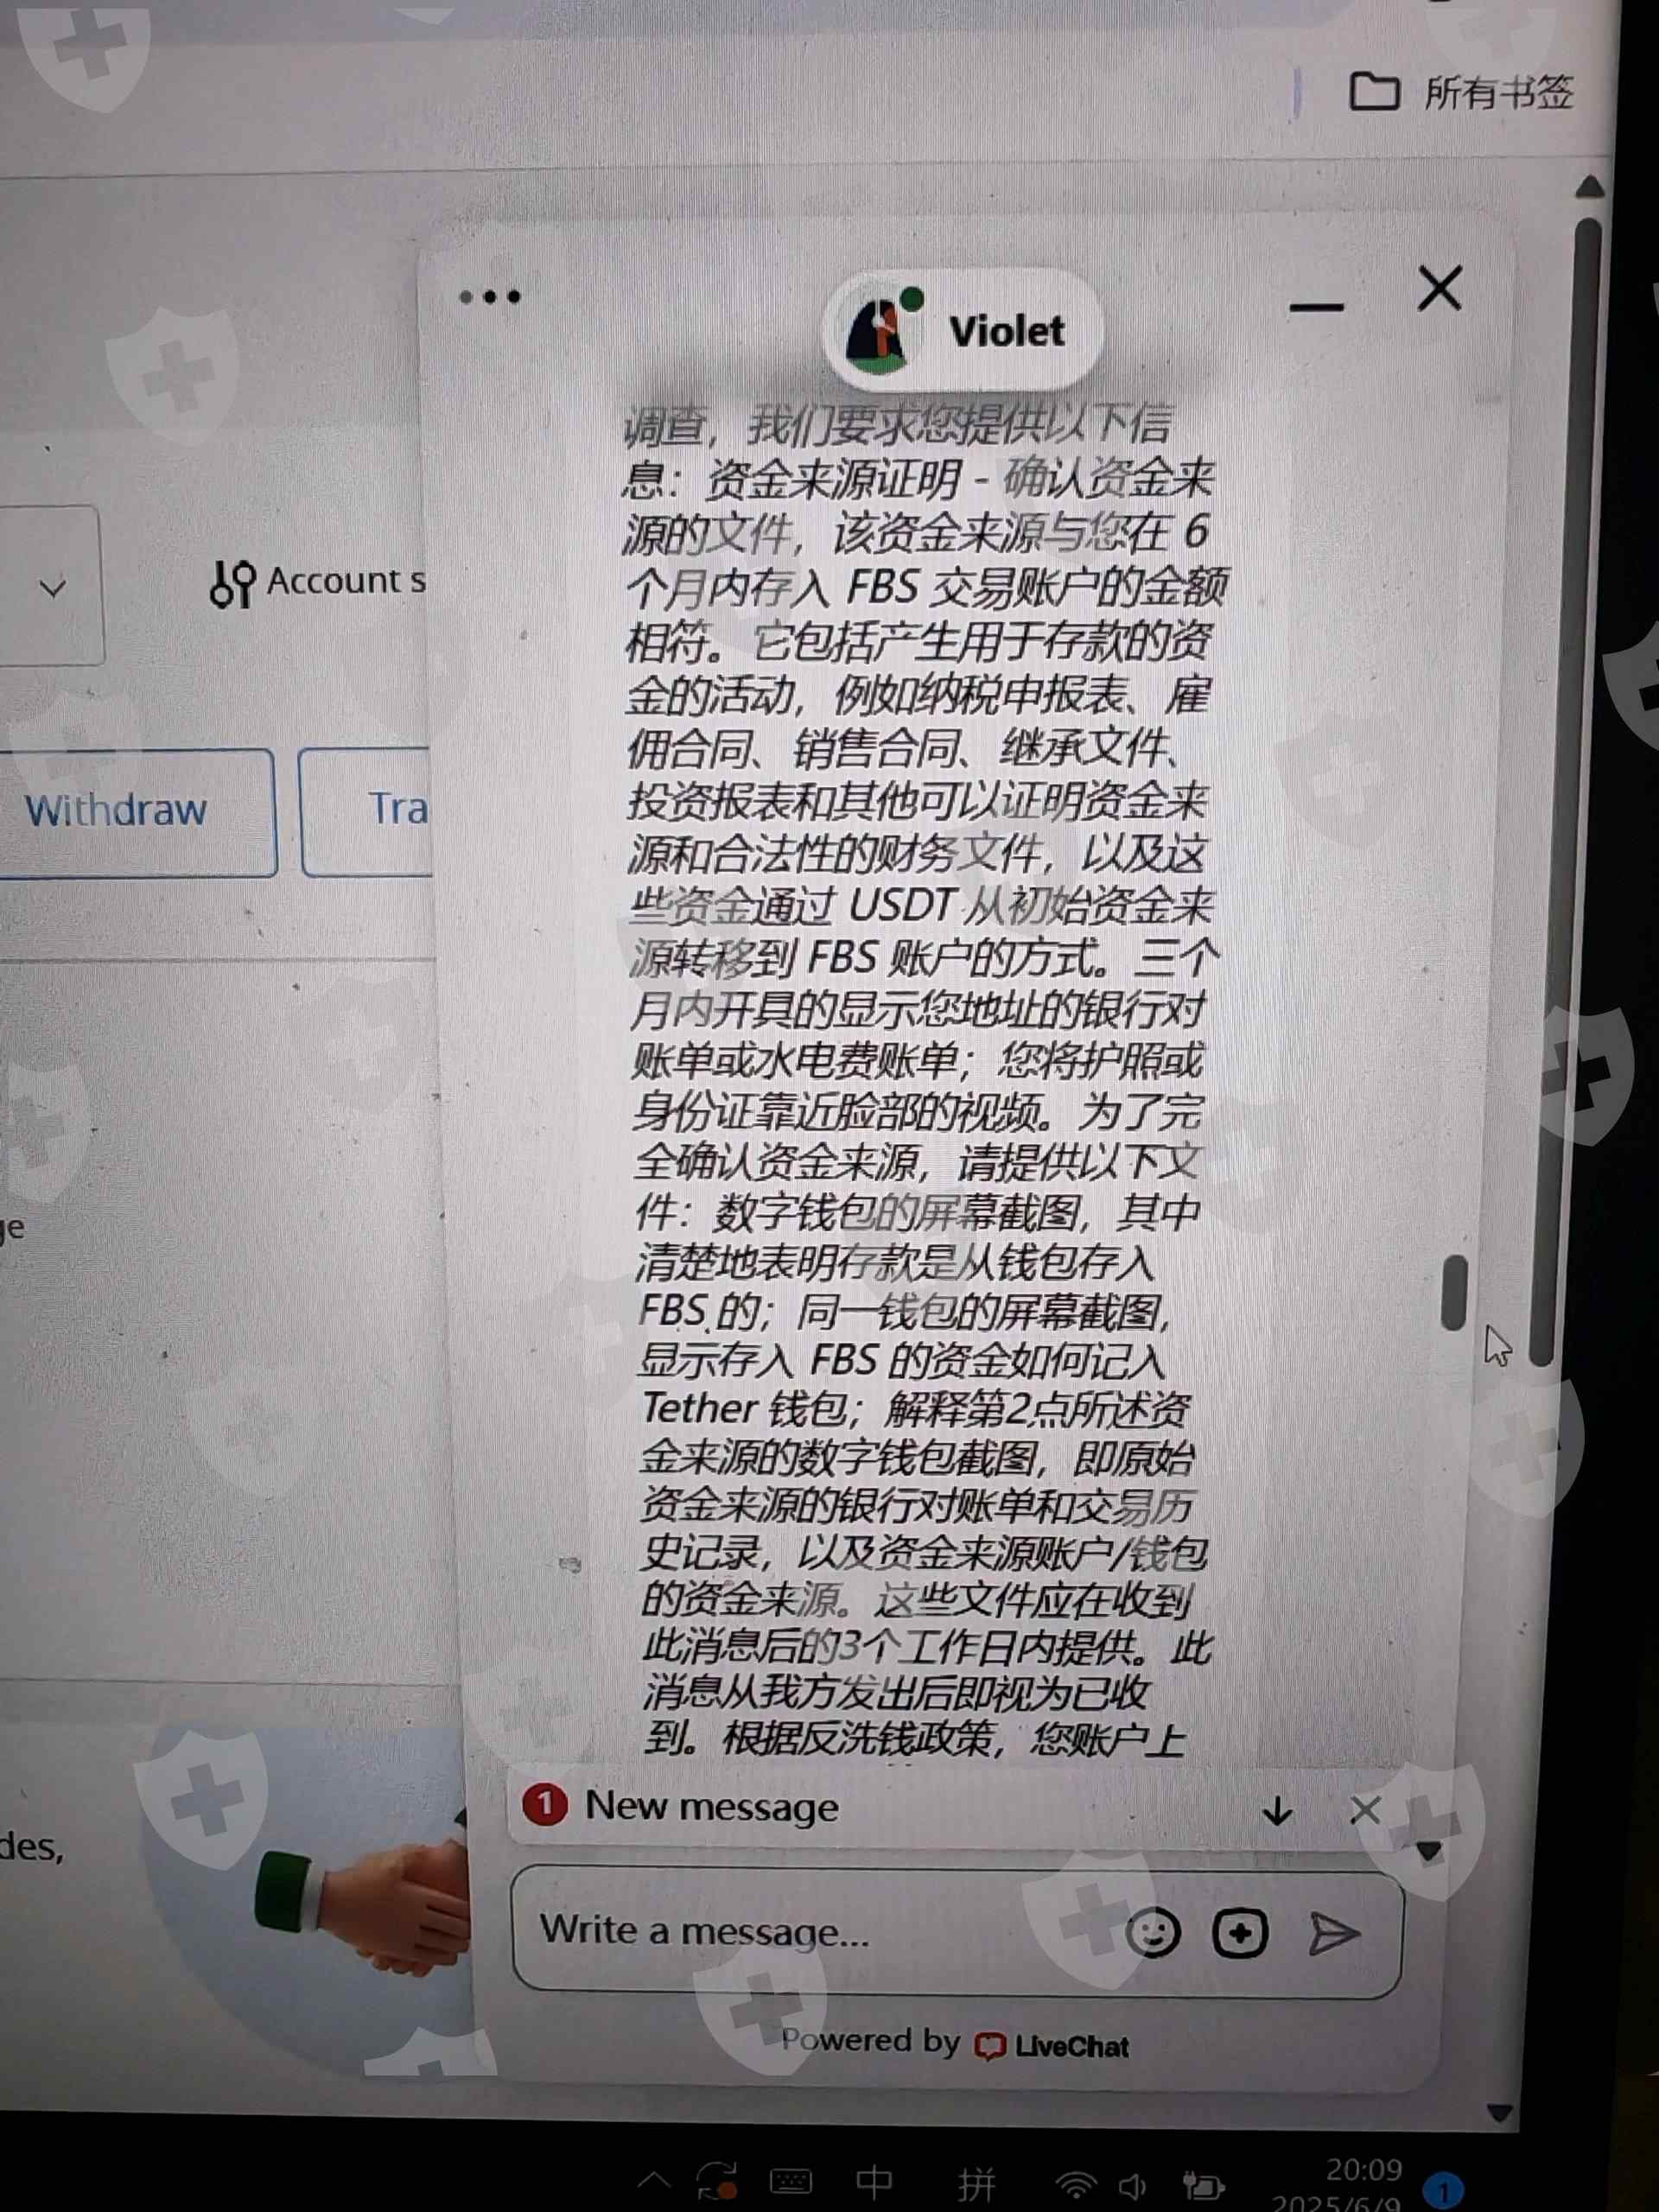 所有书签
Violet
Account s
Withdraw
Tra
ge
des,
调查，我们要求您提供以下信
息：资金来源证明 - 确认资金来
源的文件，该资金来源与您在 6
个月内存入 FBS 交易账户的金额
相符。它包括产生用于存款的资
金的活动，例如纳税申报表、雇
佣合同、销售合同、继承文件、
投资报表和其他可以证明资金来
源和合法性的财务文件，以及这
些资金通过 USDT 从初始资金来
源转移到 FBS 账户的方式。三个
月内开具的显示您地址的银行对
账单或水电费账单；您将护照或
身份证靠近脸部的视频。为了完
全确认资金来源，请提供以下文
件：数字钱包的屏幕截图，其中
清楚地表明存款是从钱包存入
FBS 的；同一钱包的屏幕截图，
显示存入 FBS 的资金如何记入
Tether 钱包；解释第2点所述资
金来源的数字钱包截图，即原始
资金来源的银行对账单和交易历
史记录，以及资金来源账户/钱包
的资金来源。这些文件应在收到
此消息后的3个工作日内提供。此
消息从我方发出后即视为已收
到。根据反洗钱政策，您账户上
1 New message
Write a message...
Powered by LiveChat
中 拼
20:09
2025/6/9
1